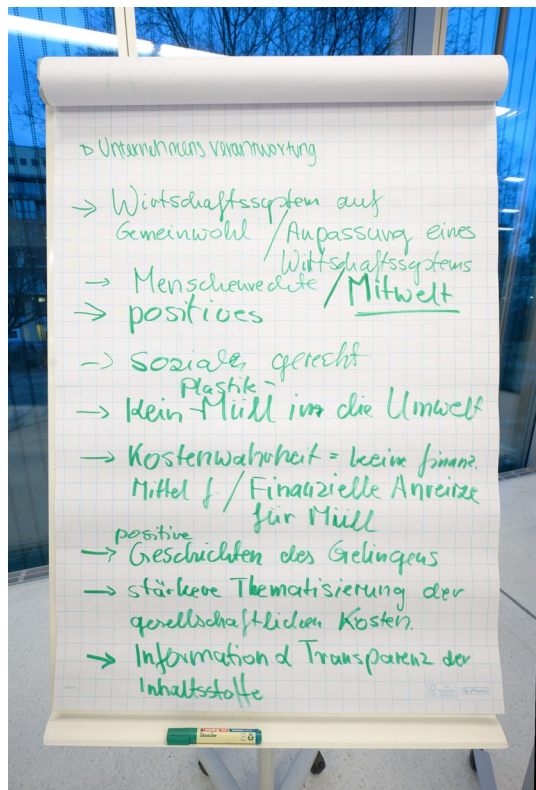 ▷ Unternehmensverantwortung
→ Wirtschaftssystem auf
Gemeinwohl / Anpassung eines
Wirtschaftssystems
→ Menschenrechte / Mitwelt
→ positives
→ sozialer gerecht
Plastik-
→ kein Müll in die Umwelt
→ Kostenwahrheit = keine finanz.
Mittel f. / Finanzielle Anreize
für Müll
positive
→ Geschichten des Gelingens
→ stärkere Thematisierung der
gesellschaftlichen Kosten.
→ Information d Transparenz der
Inhaltsstoffe